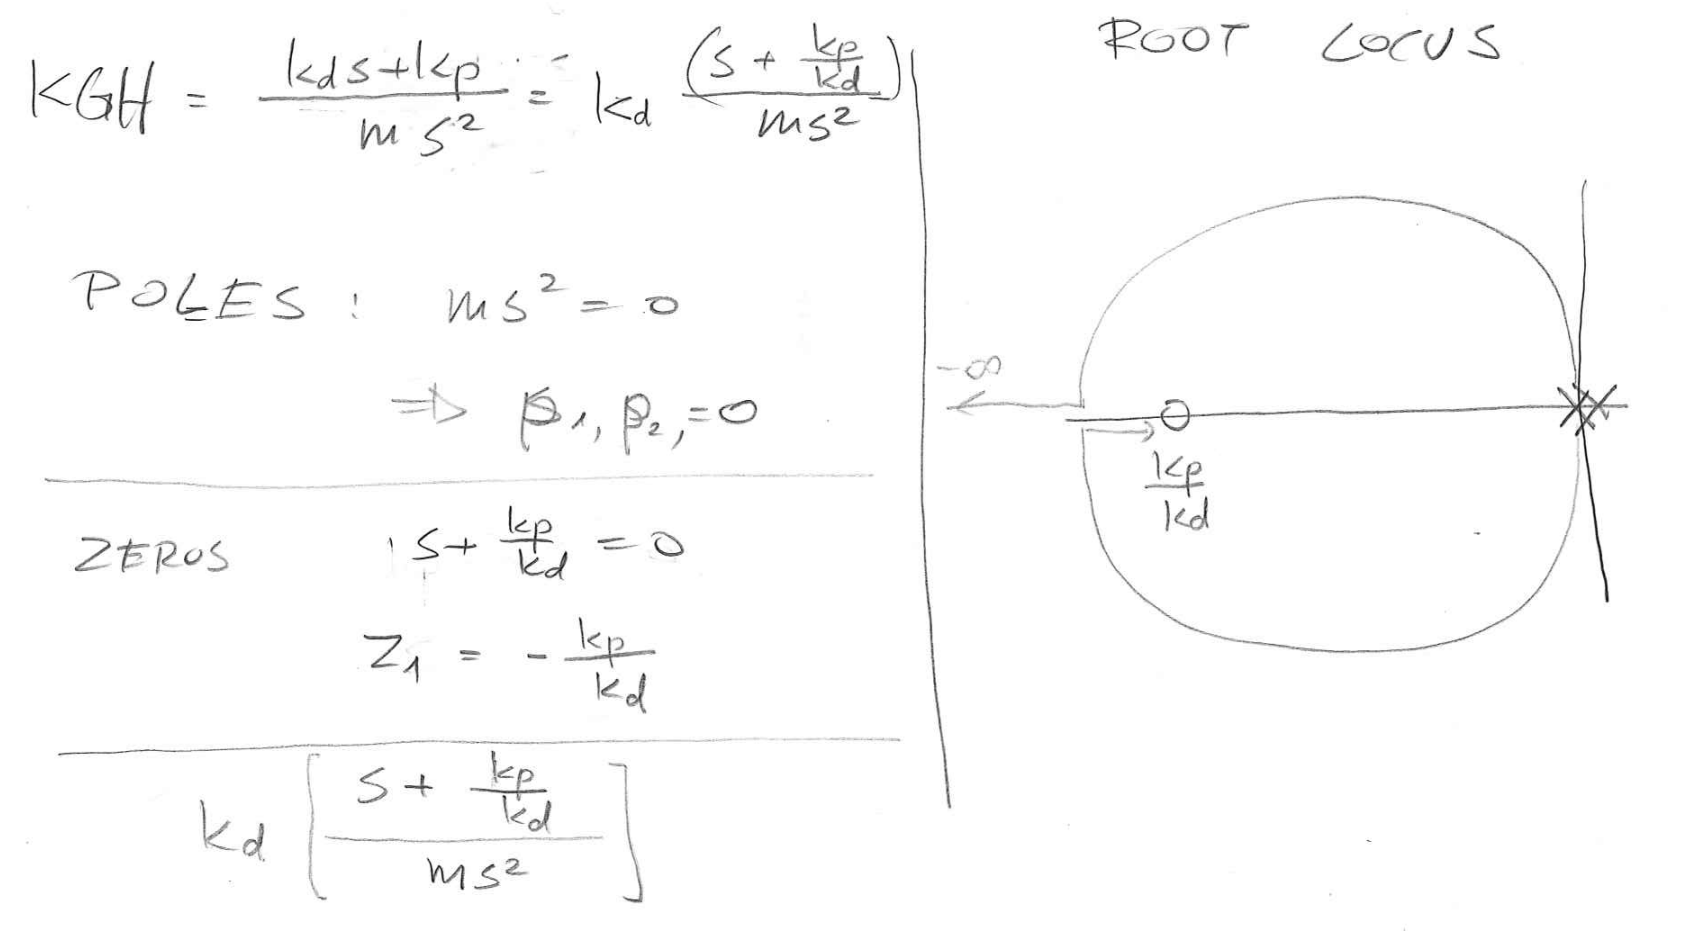 KGH = kds+kp / ms² = kd (s + kp/kd) / ms²
POLES : ms² = 0
⇒ p₁, p₂, = 0
ZEROS s + kp/kd = 0
Z₁ = - kp/kd
kd [ s + kp/kd / ms² ]
ROOT LOCUS
-∞
kp/kd